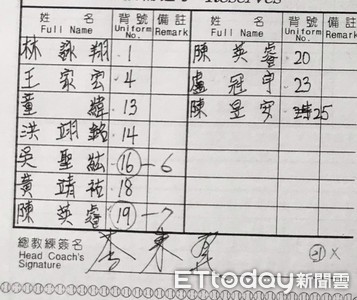 Reserves
姓 名 背號 備註 姓 名 背號 備註
Full Name Uniform No. Remark Full Name Uniform No. Remark
林詠翔 1 陳英睿 20
王家宏 4 盧冠宇 23
董緯 13 陳昱安 25
洪翊銘 14
吳聖紘 16 - 6
黃靖祐 18
陳英睿 19 - 7
總教練簽名
Head Coach's
Signature
21 X
ETtoday新聞雲